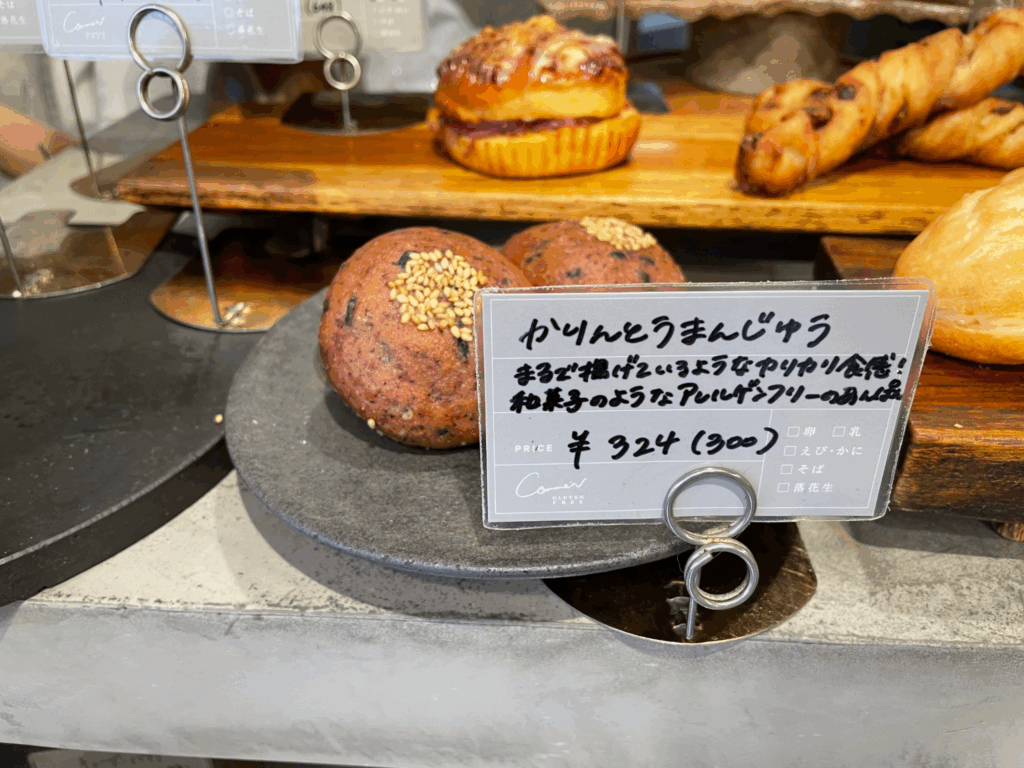 そば
落花生
そば
落花生
かりんとうまんじゅう
まるで揚げているようなカリカリ食感!
和菓子のようなアレルゲンフリーのあんぱん
PRICE ¥ 324 (300)
□ 卵 □ 乳
□ えび・かに
□ そば
□ 落花生
GLUTEN
FREE